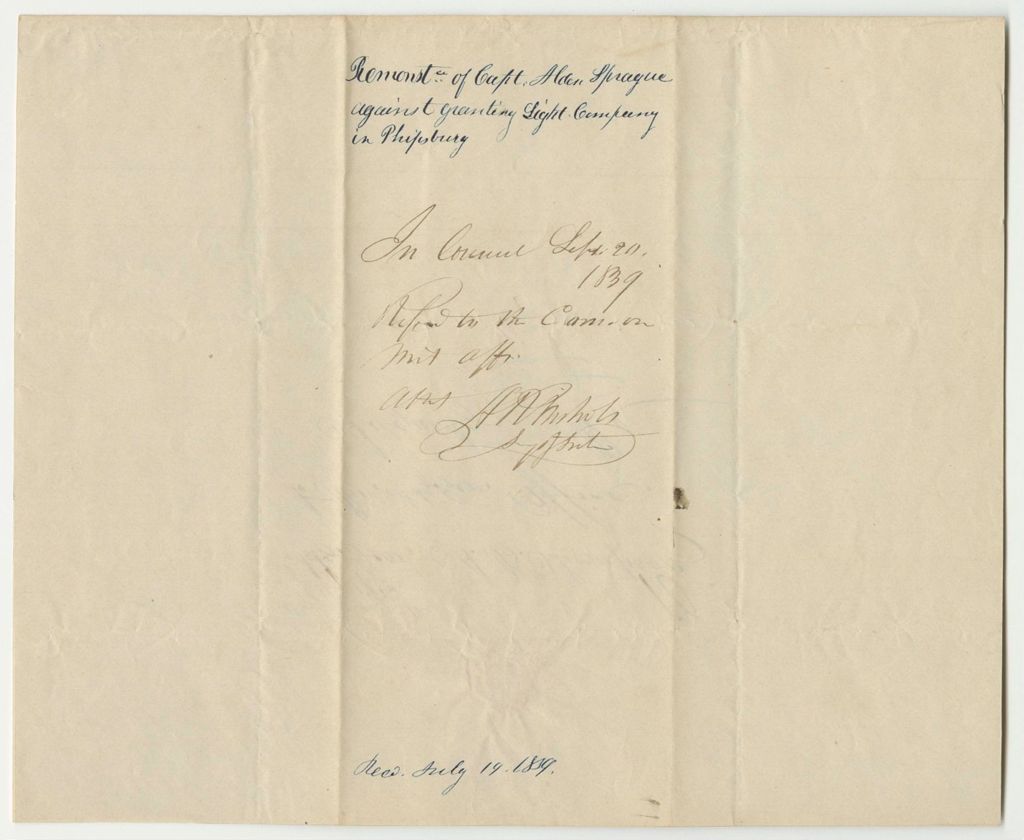 Remonst.ce of Capt. Alden Sprague
against granting Light Company
in Phipsburg
In Council Sept. 20.
1839
Refd to the Com. on
Mil Affs.
Attest A R Nichols
Sec of State
Recd. July 19. 1839.